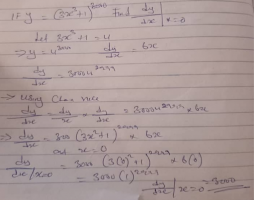 If y = (3x²+1)³⁰⁰⁰ Find dy/dx | x=0
Let 3x²+1 = u
⇒ y = u³⁰⁰⁰ du/dx = 6x
dy/du = 3000u²⁹⁹⁹
→ Using Chain rule
dy/dx = dy/du * du/dx = 3000u²⁹⁹⁹ * 6x
⇒ dy/dx = 3000 (3x²+1)²⁹⁹⁹ * 6x
at x = 0
dy/dx | x=0 = 3000 (3(0)²+1)²⁹⁹⁹ * 6(0)
= 3000 (1)²⁹⁹⁹
dy/dx | x=0 = 3000